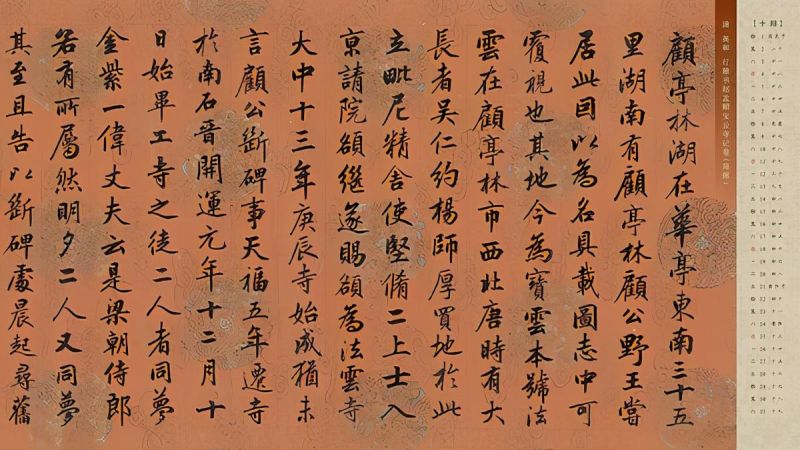 顧亭林湖在華亭東南三十五
里湖南有顧亭林顧公野王嘗
居此因以為名具載圖志中可
覆視也其地今為寶雲本號法
雲在顧亭林市西北唐時有大
長者吳仁約楊師厚買地於此
立毗尼精舍使堅脩二上士入
京請院額繼遂賜額為法雲寺
大中十三年庚辰寺始成猶未
言顧公斷碑事天福五年遷寺
於南石晉開運元年十二月十
日始畢工寺之徒二人者同夢
金紫一偉丈夫云是梁朝侍郎
若有所屬然明夕二人又同夢
其至且告以斷碑處晨起尋舊
英和